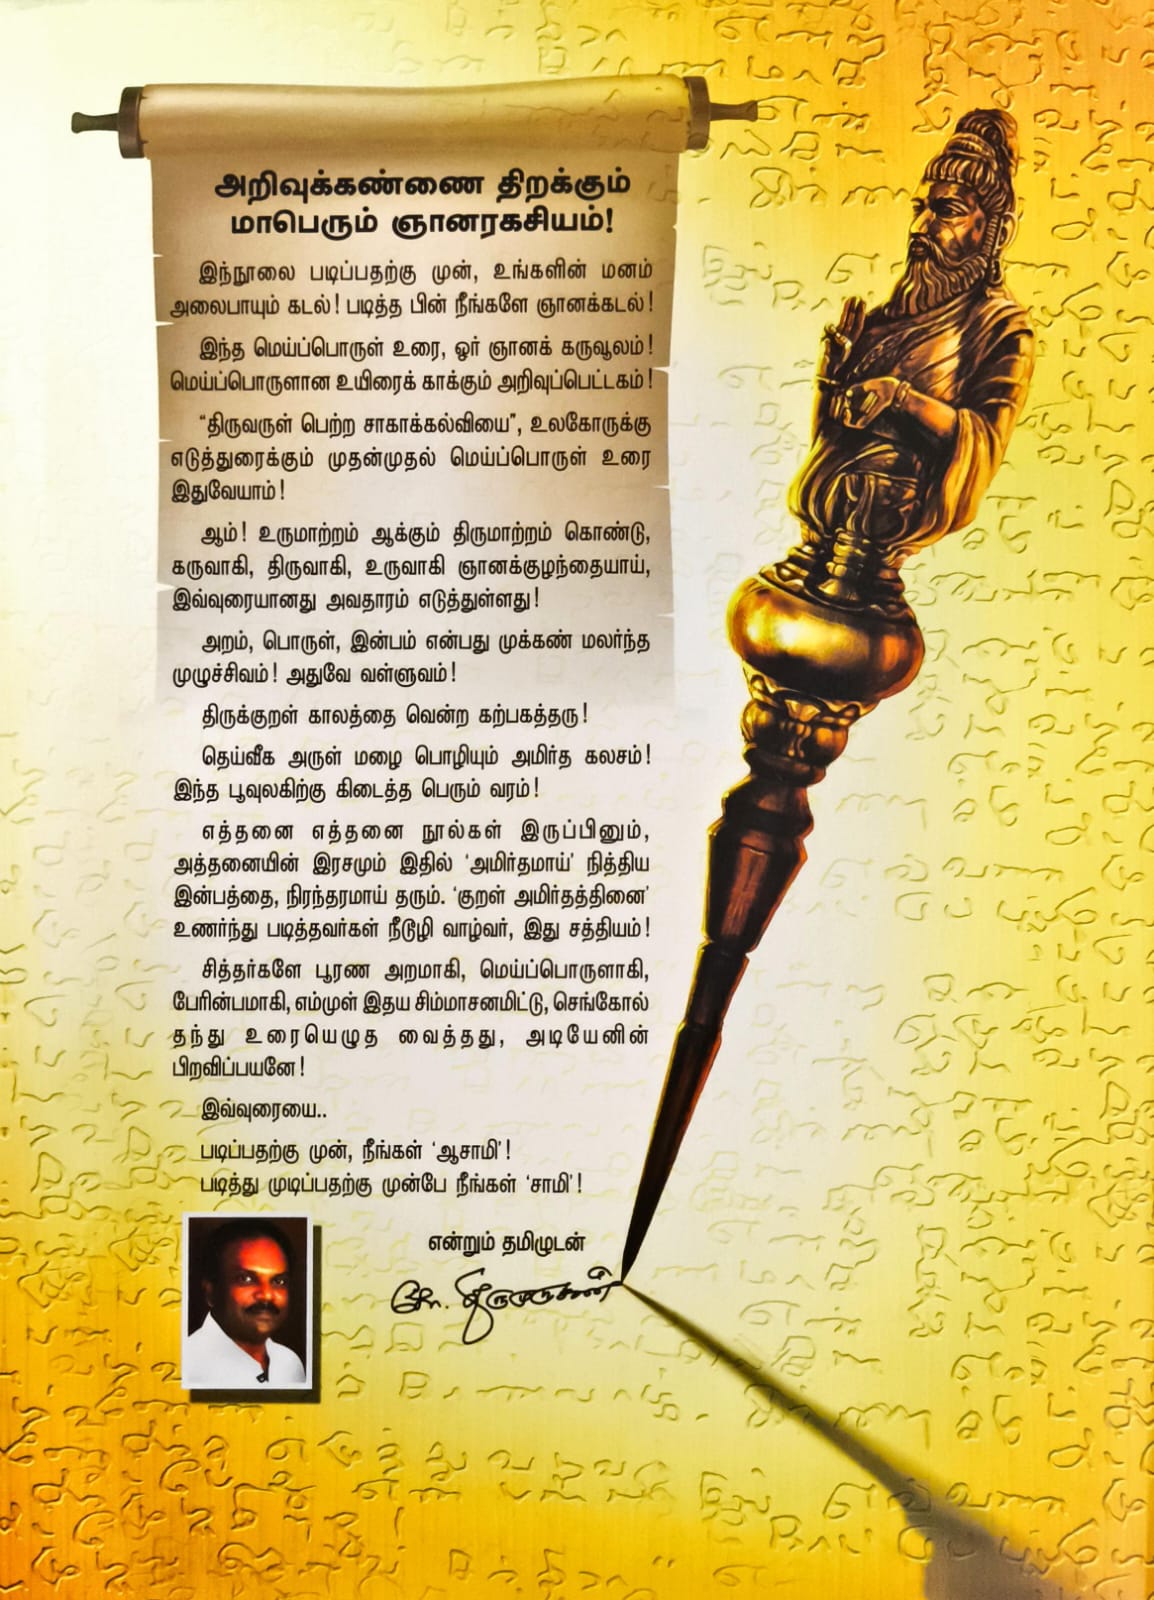 அறிவுக்கண்ணை திறக்கும்
மாபெரும் ஞானரகசியம்!
இந்நூலை படிப்பதற்கு முன், உங்களின் மனம்
அலைபாயும் கடல்! படித்த பின் நீங்களே ஞானக்கடல்!
இந்த மெய்ப்பொருள் உரை, ஓர் ஞானக் கருவூலம்!
மெய்ப்பொருளான உயிரைக் காக்கும் அறிவுப்பெட்டகம்!
“திருவருள் பெற்ற சாகாக்கல்வியை”, உலகோருக்கு
எடுத்துரைக்கும் முதன்முதல் மெய்ப்பொருள் உரை
இதுவேயாம்!
ஆம்! உருமாற்றம் ஆக்கும் திருமாற்றம் கொண்டு,
கருவாகி, திருவாகி, உருவாகி ஞானக்குழந்தையாய்,
இவ்வுரையானது அவதாரம் எடுத்துள்ளது!
அறம், பொருள், இன்பம் என்பது முக்கண் மலர்ந்த
முழுச்சிவம்! அதுவே வள்ளுவம்!
திருக்குறள் காலத்தை வென்ற கற்பகத்தரு!
தெய்வீக அருள் மழை பொழியும் அமிர்த கலசம்!
இந்த பூவுலகிற்கு கிடைத்த பெரும் வரம்!
எத்தனை எத்தனை நூல்கள் இருப்பினும்,
அத்தனையின் இரசமும் இதில் ‘அமிர்தமாய்’ நித்திய
இன்பத்தை, நிரந்தரமாய் தரும். ‘குறள் அமிர்தத்தினை’
உணர்ந்து படித்தவர்கள் நீடூழி வாழ்வர், இது சத்தியம்!
சித்தர்களே பூரண அறமாகி, மெய்ப்பொருளாகி,
பேரின்பமாகி, எம்முள் இதய சிம்மாசனமிட்டு, செங்கோல்
தந்து உரையெழுத வைத்தது, அடியேனின்
பிறவிப்பயனே!
இவ்வுரையை..
படிப்பதற்கு முன், நீங்கள் ‘ஆசாமி’!
படித்து முடிப்பதற்கு முன்பே நீங்கள் ‘சாமி’!
என்றும் தமிழுடன்